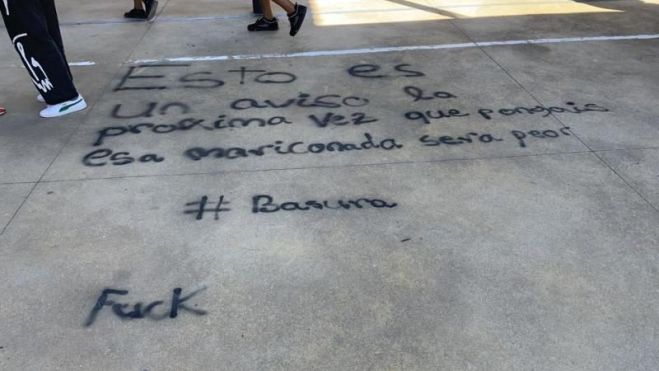 Esto es
un aviso la
proxima vez que pongais
esa mariconada sera peor
# Basura
Fuck